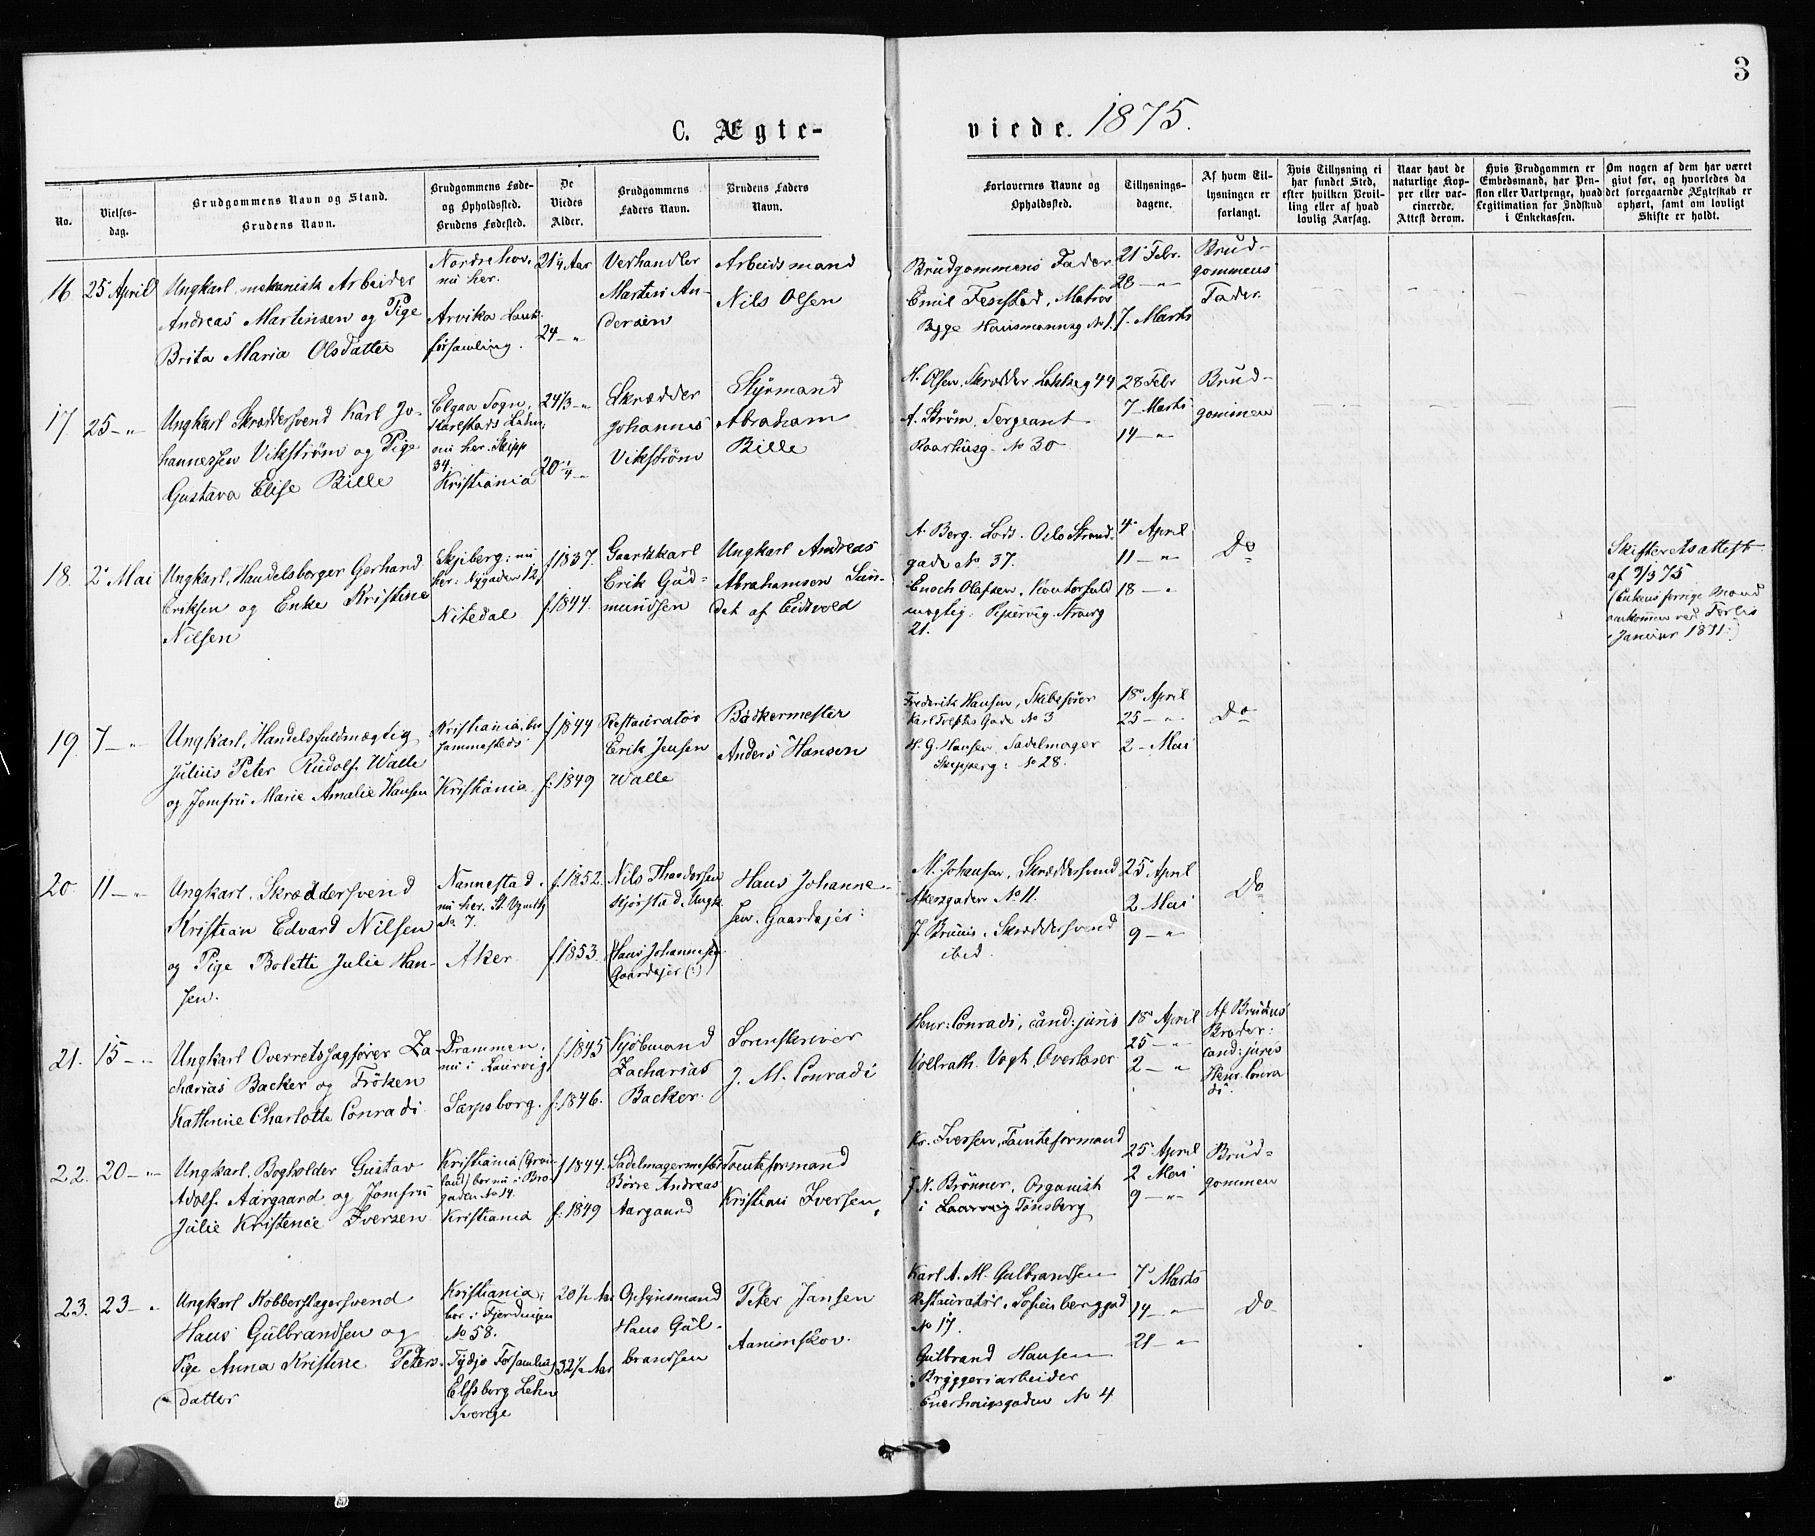 3
C. Ægte-
viede. 1875.
No.
Vielses-
dag.
Brudgommens Navn og Stand.
Brudens Navn.
Brudgommens Føde-
og Opholdssted.
Brudens Fødested.
De
Viedes
Alder.
Brudgommens
Faders Navn.
Brudens Faders
Navn.
Forlovernes Navne og
Opholdssted.
Tillysnings-
dagene.
Af hvem Til-
lysningen er
forlangt.
Hvis Tillysning ei
har fundet Sted,
efter hvilken Bevil-
ling eller af hvad
lovlig Aarsag.
Naar havt de
naturlige Kop-
per eller vac-
cinerede.
Attest derom.
Hvis Brudgommen er
Embedsmand, har Pen-
sion eller Vartpenge, hvad
Legitimation for Indskud
i Enkekassen.
Om nogen af dem har været
gift før, og hvorledes da
det foregaaende Ægteskab er
ophørt, samt om lovligt
Skifte er holdt.
16
25 April
Ungkarl, mekanisk Arbeider
Andreas Martinsen og Pige
Brita Maria Olsdatter
Nordrehov,
nu her.
Arvika Lands
församling.
21 1/4 Aar
24 – "
Verhandler
Martin An-
dersen
Arbeidsmand
Nils Olsen
Brudgommens Fader
Emil Festad, Matros
Byge Hausmannsg No 1.
21 Febr.
28 – "
7. Marts
Brud-
gommens
Fader.
17
25 – "
Ungkarl Skræddersvend Karl Jo-
hannessen Vikstrøm og Pige
Gustava Elise Bille
Elgaa Sogn,
Karlstads Lehn,
nu her. Skipp
34.
Kristiania
24 1/3 – "
20 1/4 – "
Skrædder
Johannes
Vikstrøm
Styrmand
Abraham
Bille
H. Olsen, Skrædder, Lakkeg 44
A. Strøm, Sergeant
Raadhusg. No 30
28 Febr
7 Marts
14 – "
Brud-
gommen
18.
2 Mai
Ungkarl, Handelsborger Gerhard
Eriksen og Enke Kristine
Nilsen
Skjeberg; nu
her: Nygaden 12,
Nitedal
f. 1837.
f. 1844.
Gaardkarl
Erik Gud-
mundsen
Ungkarl Andreas
Abrahamsen Sun-
det af Eidsvold
A. Berg. Lods. Oslo Strand-
gade No 37.
Enoch Olafsen, Kontorfuld
mægtig. Pipervig. Strandg
21.
4 April
11 – "
18 – "
Do
Skifteretsattest
af 9/3 75
(Enkens forrige Mand
omkommen ved Forlis
i Januar 1871.)
19.
7 – "
Ungkarl, Handelsfuldmægtig
Julius Peter Rudolf Walle
og Jomfru Marie Amalie Hansen
Kristiania, bor
sammesteds
Kristiania.
f. 1844
f. 1849
Restauratør
Erik Jensen
Walle
Bødkermester
Anders Hansen
Frederik Hansen, Skibsfører
Karl Tefts Gade No 3
H. G. Hansen, Sadelmager
Skipperg: No 28.
18 April
25 – "
2 – Mai
Do
20.
11 – "
Ungkarl, Skræddersvend
Kristian Edvard Nilsen
og Pige Bolette Julie Han-
sen.
Nannestad,
nu her.
No 7.
Aker.
f. 1852.
f. 1853.
Nils Thordersen
(Hans Johannesen
Gaardejer (:)
Hans Johanne-
sen. Gaardejer:
M. Johansen, Skræddersvend
Akersgaden No 11.
J. Bruun, Skræddersvend
ibid.
25 April
2 Mai
9 – "
Do
21.
15 – "
Ungkarl Overretssagfører Za-
charias Backer og Frøken
Kathrine Charlotte Conradi
Drammen,
nu i Laurvig
Sarpsborg.
f. 1845
f. 1846.
Kjøbmand
Zacharias
Backer.
Sorenskriver
J. M. Conradi
Henr: Conradi, cand: juris
Vollrath Vogt, Overlærer
18 April
25 – "
2 – "
Af Brudens
Broder:
cand: juris
Henr. Conra
di.
22.
20 – "
Ungkarl, Bogholder Gustav
Adolf Aargaard og Jomfru
Julie Kristence Iversen
Kristiania (Grøn
land) bor nu i Bro
gaden No 14.
Kristiania
f. 1844.
f. 1849
Sadelmagermester
Børre Andreas
Aargaard
Tomteformand
Kristian Iversen,
Kr. Iversen, Tomteformand
J. N. Brønner, Organist
i Laurvig Tønsberg
25 April
2 Mai
9 – "
Brud-
gommen
23.
23 – "
Ungkarl Kobberslagersvend
Hans Gulbrandsen og
Pige Anna Kristine Peters-
datter
Kristiania,
bor i Fjerdingen
No 58.
Tydje Församling
Elfsborg Lehn
Sverige
20 1/2 Aar
32 1/2 Aar
Opsynsmand
Hans Gul-
brandsen
Peter Jansen
Karl A. M. Gulbrandsen
Restauratør, Sofienberggad
No 17.
Gulbrand Hansen
Bryggeriarbeider
Enerhaugsgaden No 4
7 Marts
14 – "
21 – "
Do